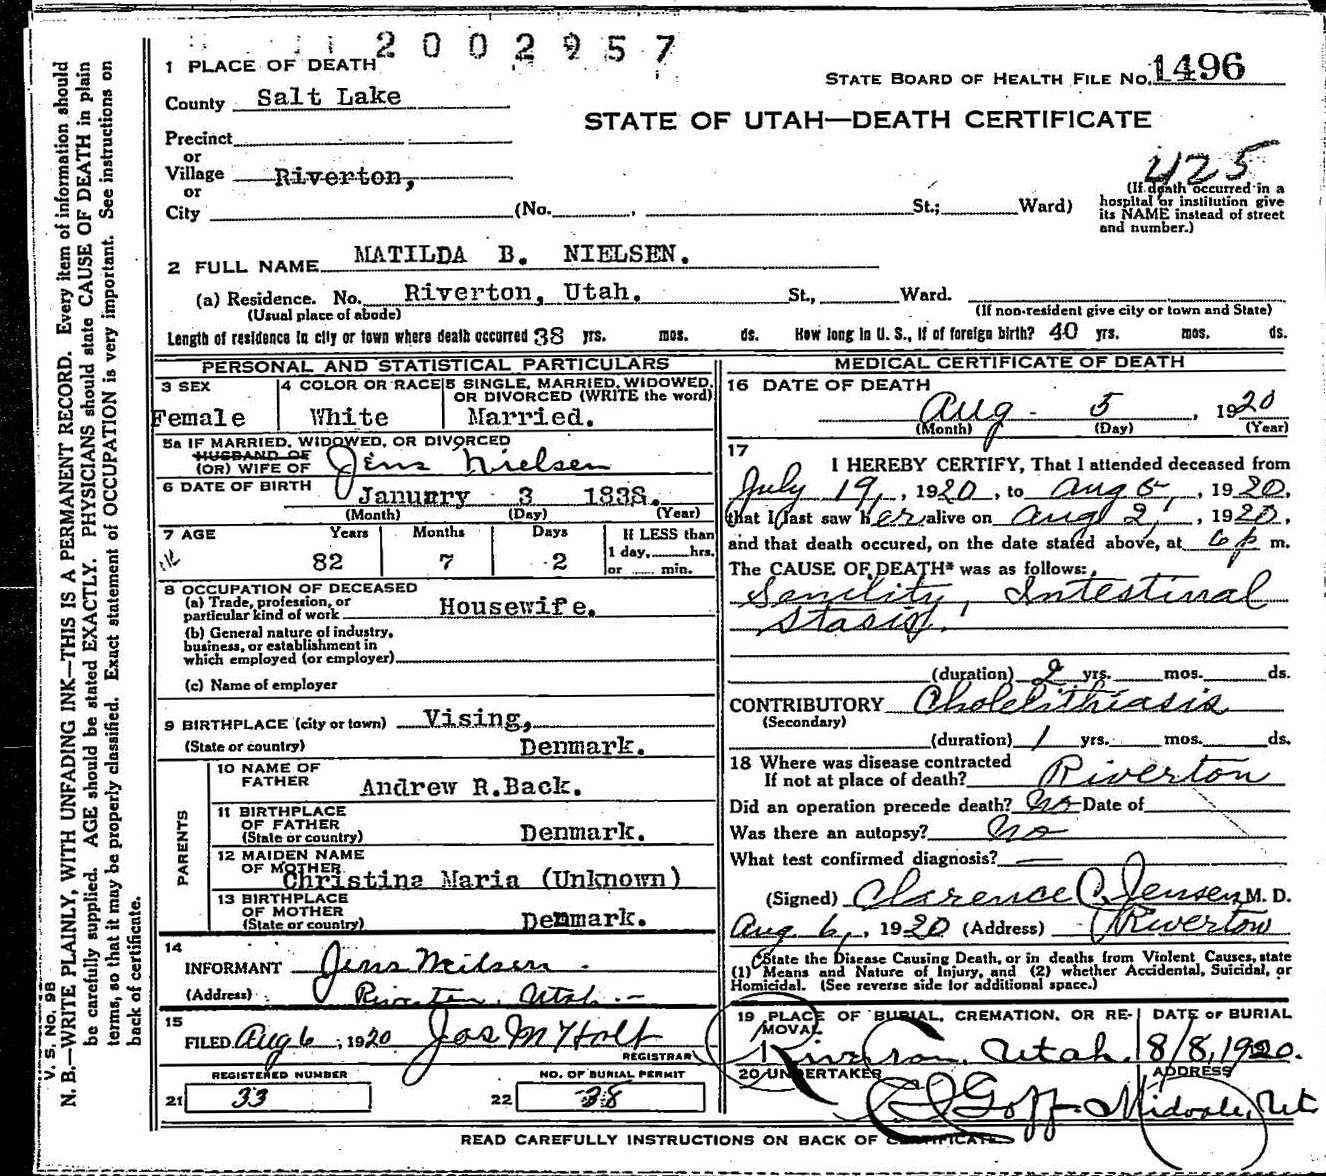 2002957
1 PLACE OF DEATH
STATE BOARD OF HEALTH FILE No. 1496
County Salt Lake
STATE OF UTAH—DEATH CERTIFICATE
Precinct
or
Village Riverton,
or
City (No. , St.; Ward)
425
(If death occurred in a
hospital or institution give
its NAME instead of street
and number.)
2 FULL NAME MATILDA B. NIELSEN.
(a) Residence. No. Riverton, Utah. St., Ward.
(Usual place of abode) (If non-resident give city or town and State)
Length of residence in city or town where death occurred 38 yrs. mos. ds. How long in U. S., if of foreign birth? 40 yrs. mos. ds.
PERSONAL AND STATISTICAL PARTICULARS
3 SEX 4 COLOR OR RACE 5 SINGLE, MARRIED, WIDOWED,
OR DIVORCED (WRITE the word)
Female White Married.
5a IF MARRIED, WIDOWED, OR DIVORCED
HUSBAND OF
(OR) WIFE OF Jens Nielsen
6 DATE OF BIRTH January 3 1838.
(Month) (Day) (Year)
7 AGE Years Months Days If LESS than
1 day, hrs.
or min.
82 7 2
8 OCCUPATION OF DECEASED
(a) Trade, profession, or
particular kind of work Housewife.
(b) General nature of industry,
business, or establishment in
which employed (or employer)
(c) Name of employer
9 BIRTHPLACE (city or town) Vising,
(State or country) Denmark.
PARENTS
10 NAME OF
FATHER Andrew R.Back.
11 BIRTHPLACE
OF FATHER
(State or country) Denmark.
12 MAIDEN NAME
OF MOTHER
Christina Maria (Unknown)
13 BIRTHPLACE
OF MOTHER
(State or country) Denmark.
14
INFORMANT Jens Neilsen.
(Address) Riverton, Utah.
15
FILED Aug 6, 1920 Jas M Holt
REGISTRAR
REGISTERED NUMBER NO. OF BURIAL PERMIT
21 33 22 38
MEDICAL CERTIFICATE OF DEATH
16 DATE OF DEATH
Aug. 5, 1920
(Month) (Day) (Year)
17
I HEREBY CERTIFY, That I attended deceased from
July 19, 1920, to Aug 5, 1920,
that I last saw her alive on Aug 2, 1920,
and that death occured, on the date stated above, at 6 p m.
The CAUSE OF DEATH* was as follows:
Senility, Intestinal
Stasis.
(duration) 2 yrs. mos. ds.
CONTRIBUTORY Cholelithiasis
(Secondary)
(duration) 1 yrs. mos. ds.
18 Where was disease contracted
If not at place of death? Riverton
Did an operation precede death? No Date of
Was there an autopsy? No
What test confirmed diagnosis? —
(Signed) Clarence C. Jensen, M. D.
Aug. 6, 1920 (Address) Riverton
(State the Disease Causing Death, or in deaths from Violent Causes, state
(1) Means and Nature of Injury, and (2) whether Accidental, Suicidal, or
Homicidal. (See reverse side for additional space.)
19 PLACE OF BURIAL, CREMATION, OR RE- DATE OF BURIAL
MOVAL
Riverton, Utah. 8/8, 1920.
20 UNDERTAKER ADDRESS
Goff Midvale, Ut
READ CAREFULLY INSTRUCTIONS ON BACK OF CERTIFICATE
V. S. No. 98
N. B.—WRITE PLAINLY, WITH UNFADING INK—THIS IS A PERMANENT RECORD. Every item of information should
be carefully supplied. AGE should be stated EXACTLY. PHYSICIANS should state CAUSE OF DEATH in plain
terms, so that it may be properly classified. Exact statement of OCCUPATION is very important. See instructions on
back of certificate.